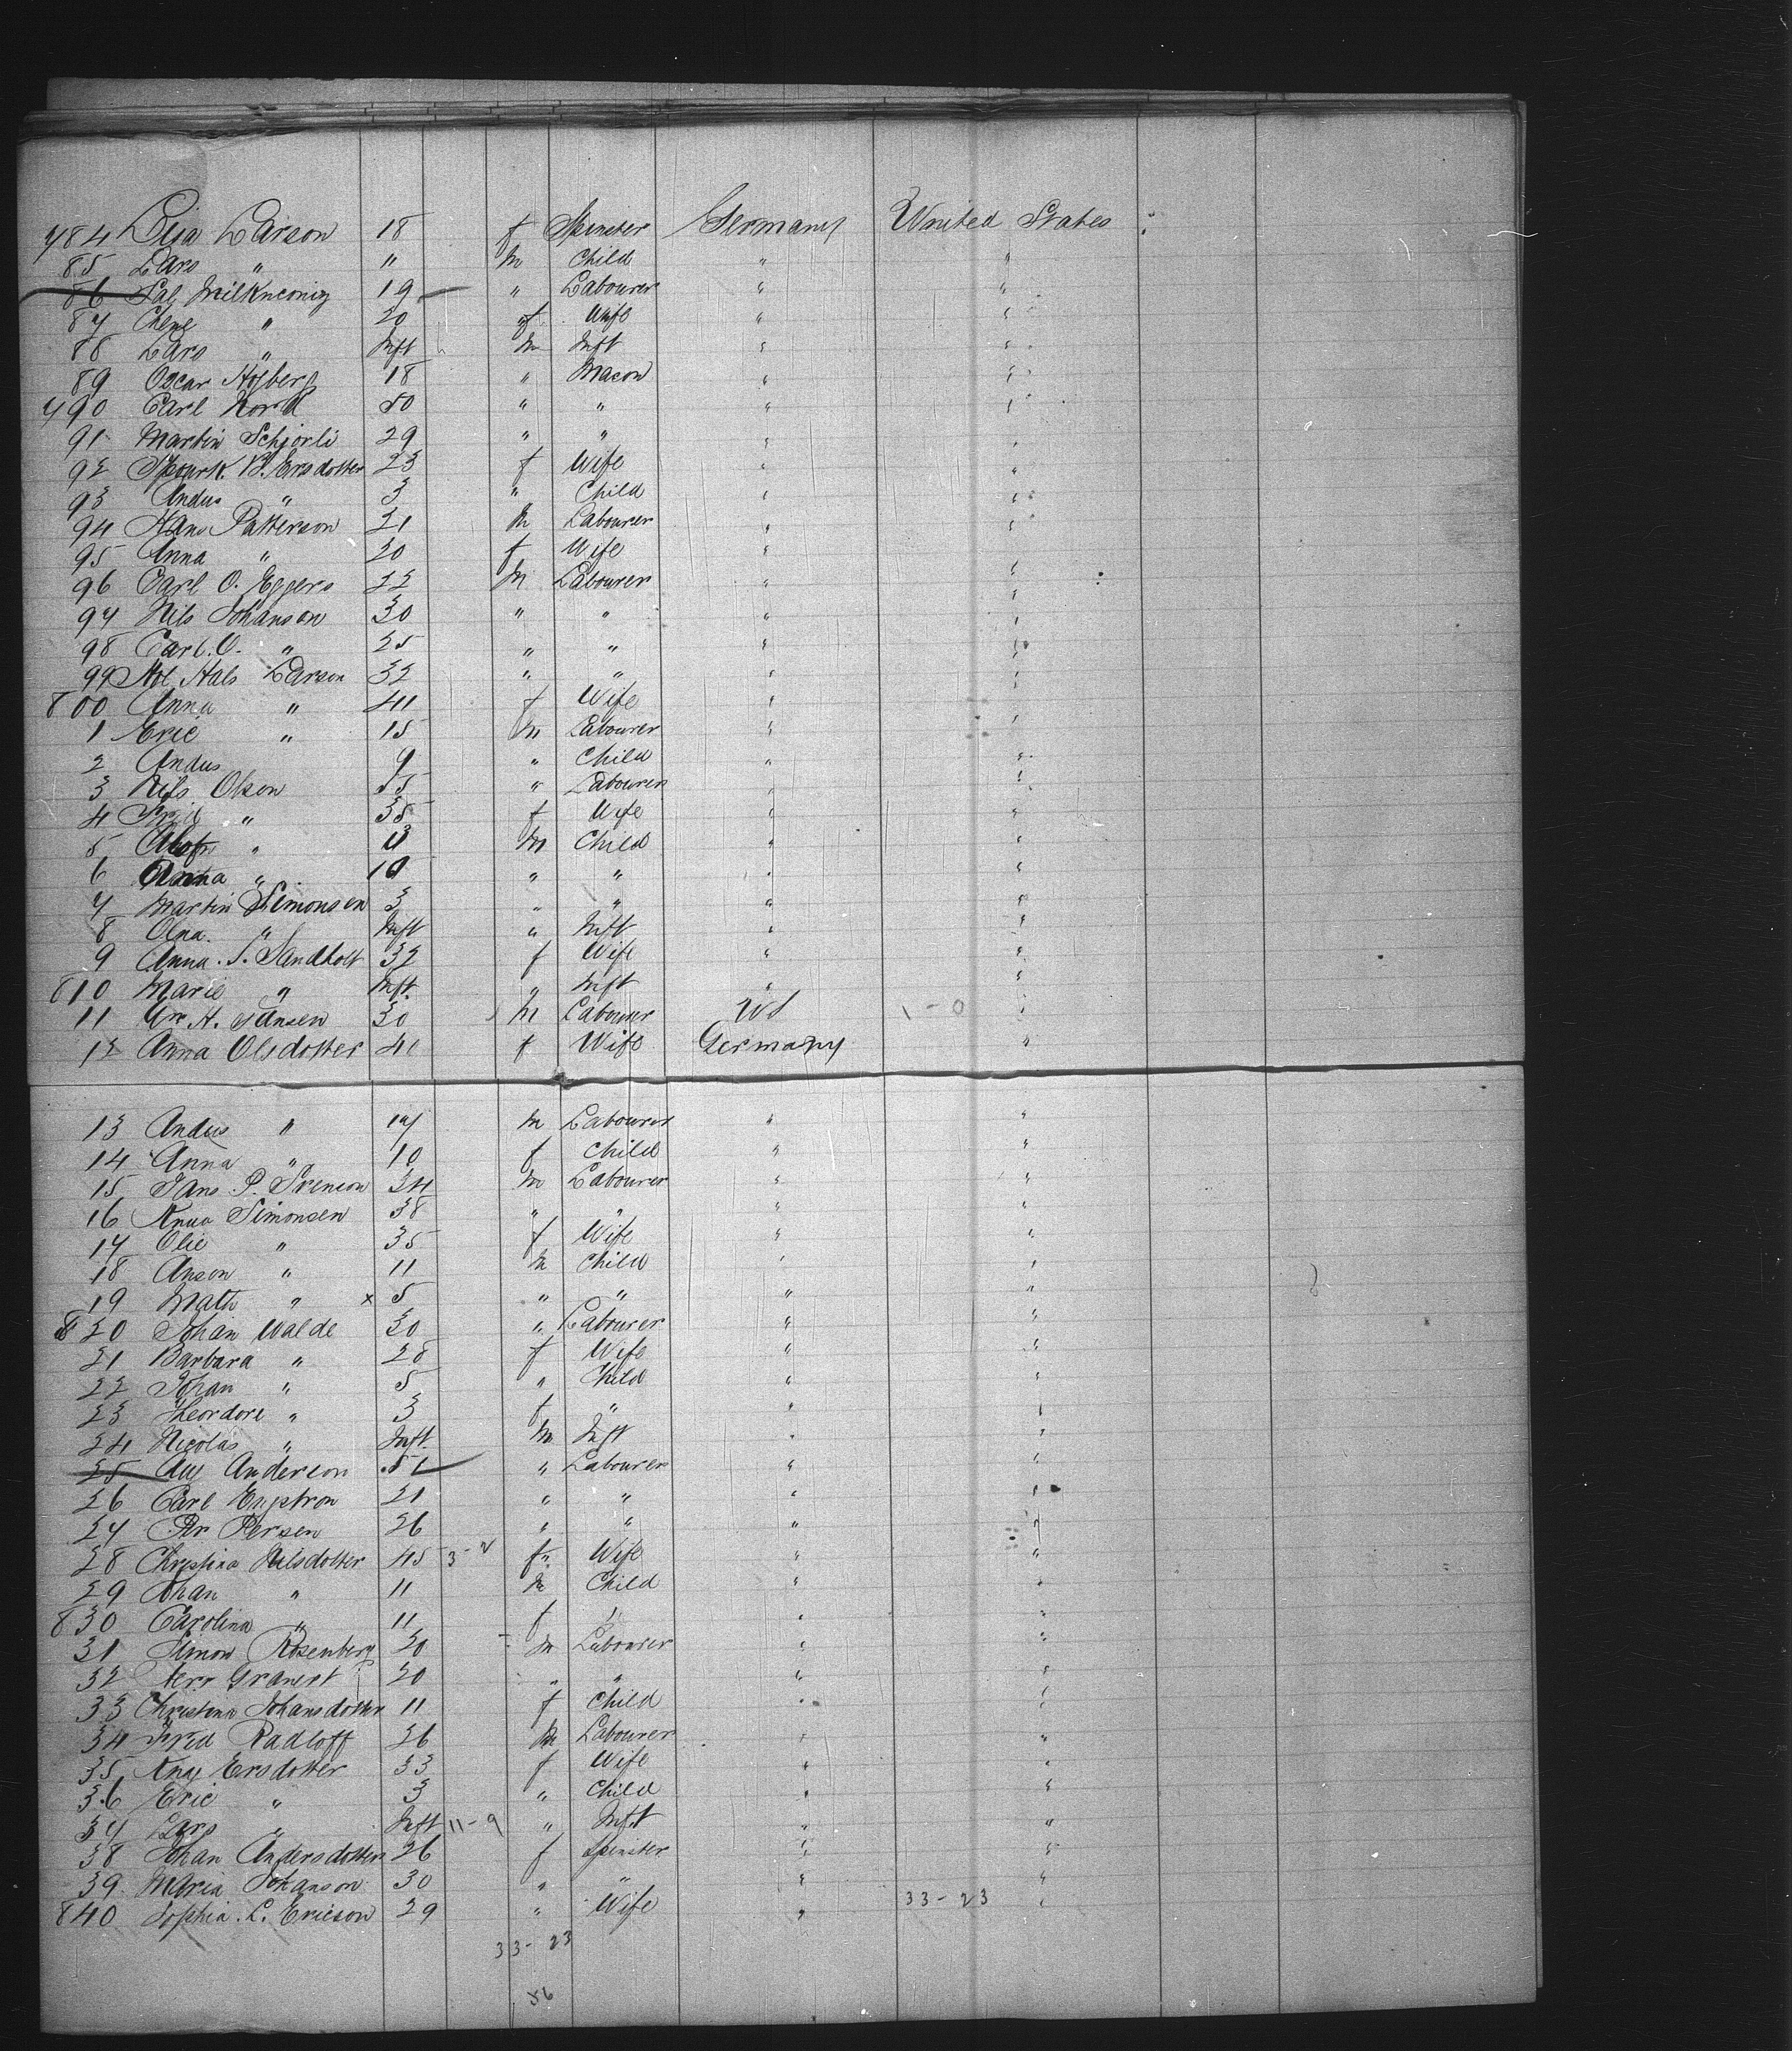 784 Lisa Larson 18 f Spinster Germany United States
85 Lars " " m Child " "
86 Pal 19 " Labourer " "
87 " 20 f Wife " "
88 Lars " Inft m Inft " "
89 Oscar Hojberg 18 " Mason " "
790 Carl 50 " " " "
91 Martin Schjorli 29 " " " "
92 B. Ersdotter 23 f Wife " "
93 Andus " 3 " Child " "
94 Hans Patterson 21 m Labourer " "
95 Anna " 20 f Wife " "
96 Carl O. Eggers 22 m Labourer " "
97 Nils Johanson 30 " " " "
98 Carl. O. " 25 " " " "
99 Hals Larson 32 " " " "
800 Anna " 41 f Wife " "
1 Eric " 15 m Labourer " "
2 Andus 9 " Child " "
3 Nils Olson 55 " Labourer " "
4 " 35 f Wife " "
5 " 11 m Child " "
6 Anna " 10 " " " "
7 Martin Simonsen 3 " " " "
8 Olna. " Inft " Inft " "
9 Anna. S. Sandholt 32 f Wife " "
810 Marie " Inft. " Inft " "
11 A. Jansen 30 m Labourer US 1-0 "
12 Anna Olsdotter 41 f Wife Germany "
13 Andus " 17 m Labourer " "
14 Anna " 10 f Child " "
15 Jans P. Svenson 34 m Labourer " "
16 Simonsen 38 " " " "
17 Olie " 35 f Wife " "
18 Anson " 11 m Child " "
19 Math " x 5 " " " "
820 Johan Walde 30 " Labourer " "
21 Barbara " 28 f Wife " "
22 Johan " 5 " Child " "
23 Theordore " 3 f " " "
24 Nicolas " Inft. m Inft " "
25 Aug Anderson 51 " Labourer " "
26 Carl Engstron 21 " " " "
27 Per Persen 26 " " " "
28 Christina Nilsdotter 45 3-2 f " Wife " "
29 Johan " 11 m Child " "
830 Carolina " 11 f " " "
31 Simon Rosenberg 20 m Labourer " "
32 Granert 20 " " " "
33 Christina Johansdotter 11 f Child " "
34 Fred Radloff 26 m Labourer " "
35 Ersdotter 33 f Wife " "
36 Eric " 3 " Child " "
37 Lars " Inft 11-9 " Inft " "
38 Johan Andersdotter 26 f Spinster " "
39 Maria Johanson 30 " " " "
840 Sophia. L. Ericson 29 " Wife " 33-23 "
33-23
56